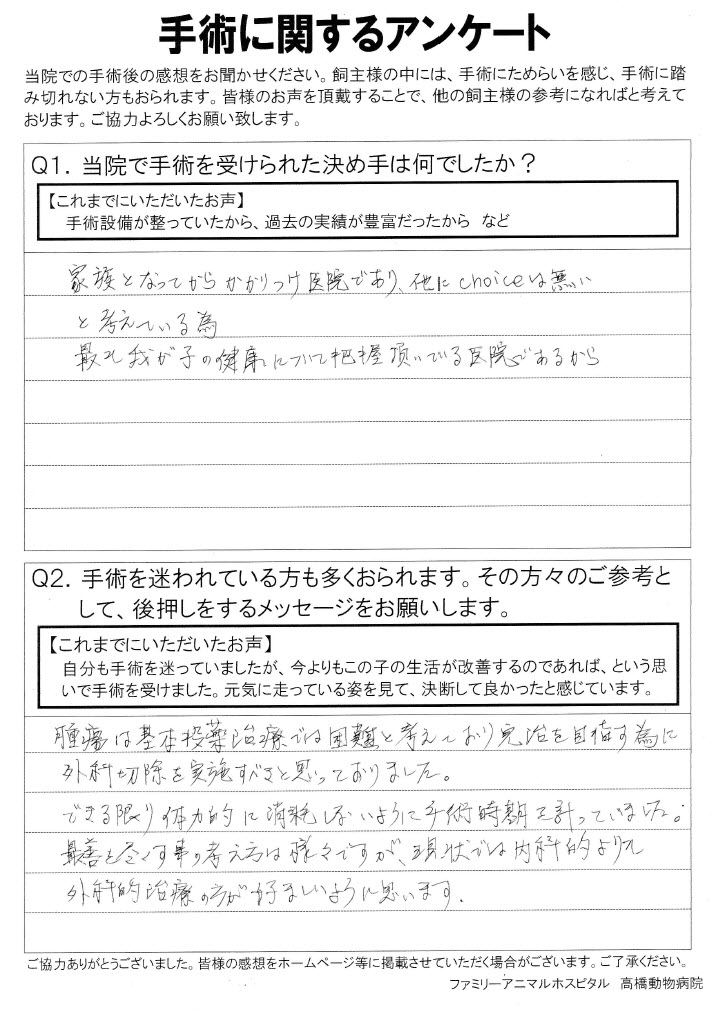 手術に関するアンケート
当院での手術後の感想をお聞かせください。飼主様の中には、手術にためらいを感じ、手術に踏
み切れない方もおられます。皆様のお声を頂戴することで、他の飼主様の参考になればと考えて
おります。ご協力よろしくお願い致します。
Q1. 当院で手術を受けられた決め手は何でしたか？
【これまでにいただいたお声】
手術設備が整っていたから、過去の実績が豊富だったから など
家族となってからかかりつけ医院であり、他にchoiceは無い
と考えている為
最も我が子の健康について把握頂いでる医院であるから
Q2. 手術を迷われている方も多くおられます。その方々のご参考と
して、後押しをするメッセージをお願いします。
【これまでにいただいたお声】
自分も手術を迷っていましたが、今よりもこの子の生活が改善するのであれば、という思
いで手術を受けました。元気に走っている姿を見て、決断して良かったと感じています。
腫瘍は基本投薬治療では困難と考えており完治を目指す為に
外科切除を実施すべきと思っておりました。
できる限り体力的に消耗しないように手術時期を計っていました。
最善を尽くす事の考え方は様々ですが、現状では内科的よりも
外科的治療の方が好ましいように思います.
ご協力ありがとうございました。皆様の感想をホームページ等に掲載させていただく場合がございます。ご了承ください。
ファミリーアニマルホスピタル 高橋動物病院